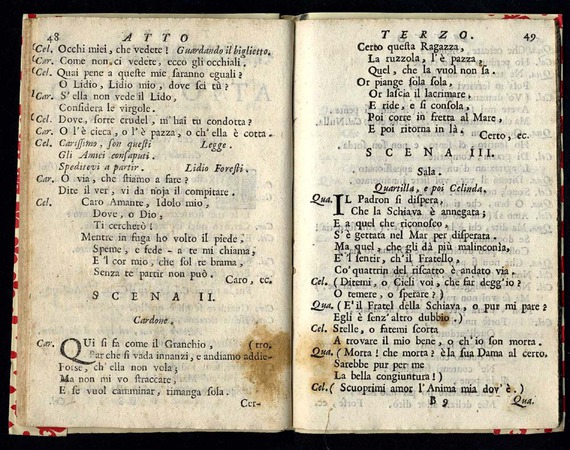 48 ATTO
Cel. Occhi miei, che vedete! Guardando il biglietto.
Car. Come non, ci vedete, ecco gli occhiali.
Cel. Quai pene a queste mie saranno eguali?
O Lidio, Lidio mio, dove sei tu?
Car. S'ella non vede il Lido,
Considera le virgole.
Cel. Dove, sorte crudel, m'hai tu condotta?
Car. O l'è cieca, o l'è pazza, o ch'ella è cotta.
Cel. Carissimo, son questi Legge.
Gli Amici consaputi.
Speditevi a partir. Lidio Foresti.
Car. O via, che stiamo a fare?
Dite il ver, vi da noja il compitare.
Cel. Caro Amante, Idolo mio,
Dove, o Dio,
Ti cercherò!
Mentre in fuga ho volto il piede,
Speme, e fede a te mi chiama,
E 'l cor mio, che sol te brama,
Senza te partir non può.
Caro, ec.
SCENA II.
Cardone.
Car. QUi si fa come il Granchio, (tro.
Par che si vada innanzi, e andiamo addie-
Forse, ch'ella non vola;
Ma non mi vo straccare,
E se vuol camminar, rimanga sola.
Cer-
TERZO. 49
Certo questa Ragazza,
La ruzzola, l'è pazza,
Quel, che la vuol non sa.
Or piange sola sola,
Or lascia il lacrimare,
E ride, e si consola,
Poi corre in fretta al Mare,
E poi ritorna in là.
Certo, ec.
SCENA III.
Sala.
Quartilla, e poi Celinda.
Qua. IL Padron si dispera,
Che la Schiava è annegata;
E a quel che riconosco,
S'è gettata nel Mar per disperata.
Ma quel, che gli dà più malinconìa,
E'l sentir, ch'il Fratello,
Co' quattrin del riscatto è andato via.
Cel. (Ditemi, o Cieli voi, che far degg'io?
O temere, o sperare?)
Qua. (E'il Fratel della Schiava, o pur mi pare?
Egli è senz'altro dubbio.)
Cel. Stelle, o fatemi scorta
A trovare il mio bene, o ch'io son morta.
Qua. (Morta! che morta? è la sua Dama al certo.
Sarebbe pur per me
La bella congiuntura!)
Cel. (Scuoprimi amor l'Anima mia dov'è.)
B 9 Qua.